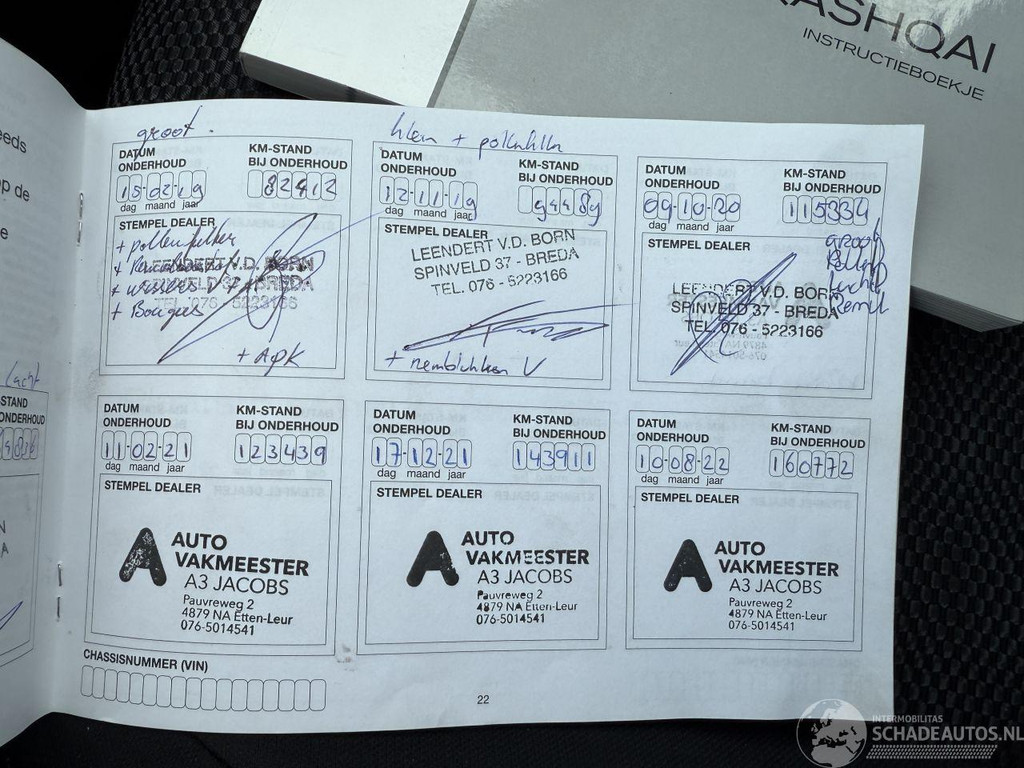 ASHQAI
INSTRUCTIEBOEKJE
eeds
op de
e
groot.
DATUM ONDERHOUD
KM-STAND BIJ ONDERHOUD
15-02-19
82412
dag maand jaar
STEMPEL DEALER
+ pollenfilter
LEENDERT V.D. BORN
SPINVELD 37 - BREDA
TEL. 076 - 5223166
+ Bougies
+ APK
klein + pollenfilter
DATUM ONDERHOUD
KM-STAND BIJ ONDERHOUD
12-11-19
94489
dag maand jaar
STEMPEL DEALER
LEENDERT V.D. BORN
SPINVELD 37 - BREDA
TEL. 076 - 5223166
+ remblokken V
DATUM ONDERHOUD
KM-STAND BIJ ONDERHOUD
09-10-20
115334
dag maand jaar
STEMPEL DEALER
groot
LEENDERT V.D. BORN
SPINVELD 37 - BREDA
TEL. 076 - 5223166
STAND
ONDERHOUD
DATUM ONDERHOUD
KM-STAND BIJ ONDERHOUD
11-02-21
123439
dag maand jaar
STEMPEL DEALER
AUTO
VAKMEESTER
A3 JACOBS
Pauvreweg 2
4879 NA Etten-Leur
076-5014541
DATUM ONDERHOUD
KM-STAND BIJ ONDERHOUD
17-12-21
143911
dag maand jaar
STEMPEL DEALER
AUTO
VAKMEESTER
A3 JACOBS
Pauvreweg 2
4879 NA Etten-Leur
076-5014541
DATUM ONDERHOUD
KM-STAND BIJ ONDERHOUD
10-08-22
160772
dag maand jaar
STEMPEL DEALER
AUTO
VAKMEESTER
A3 JACOBS
Pauvreweg 2
4879 NA Etten-Leur
076-5014541
CHASSISNUMMER (VIN)
22
INTERMOBILITAS
SCHADEAUTOS.NL